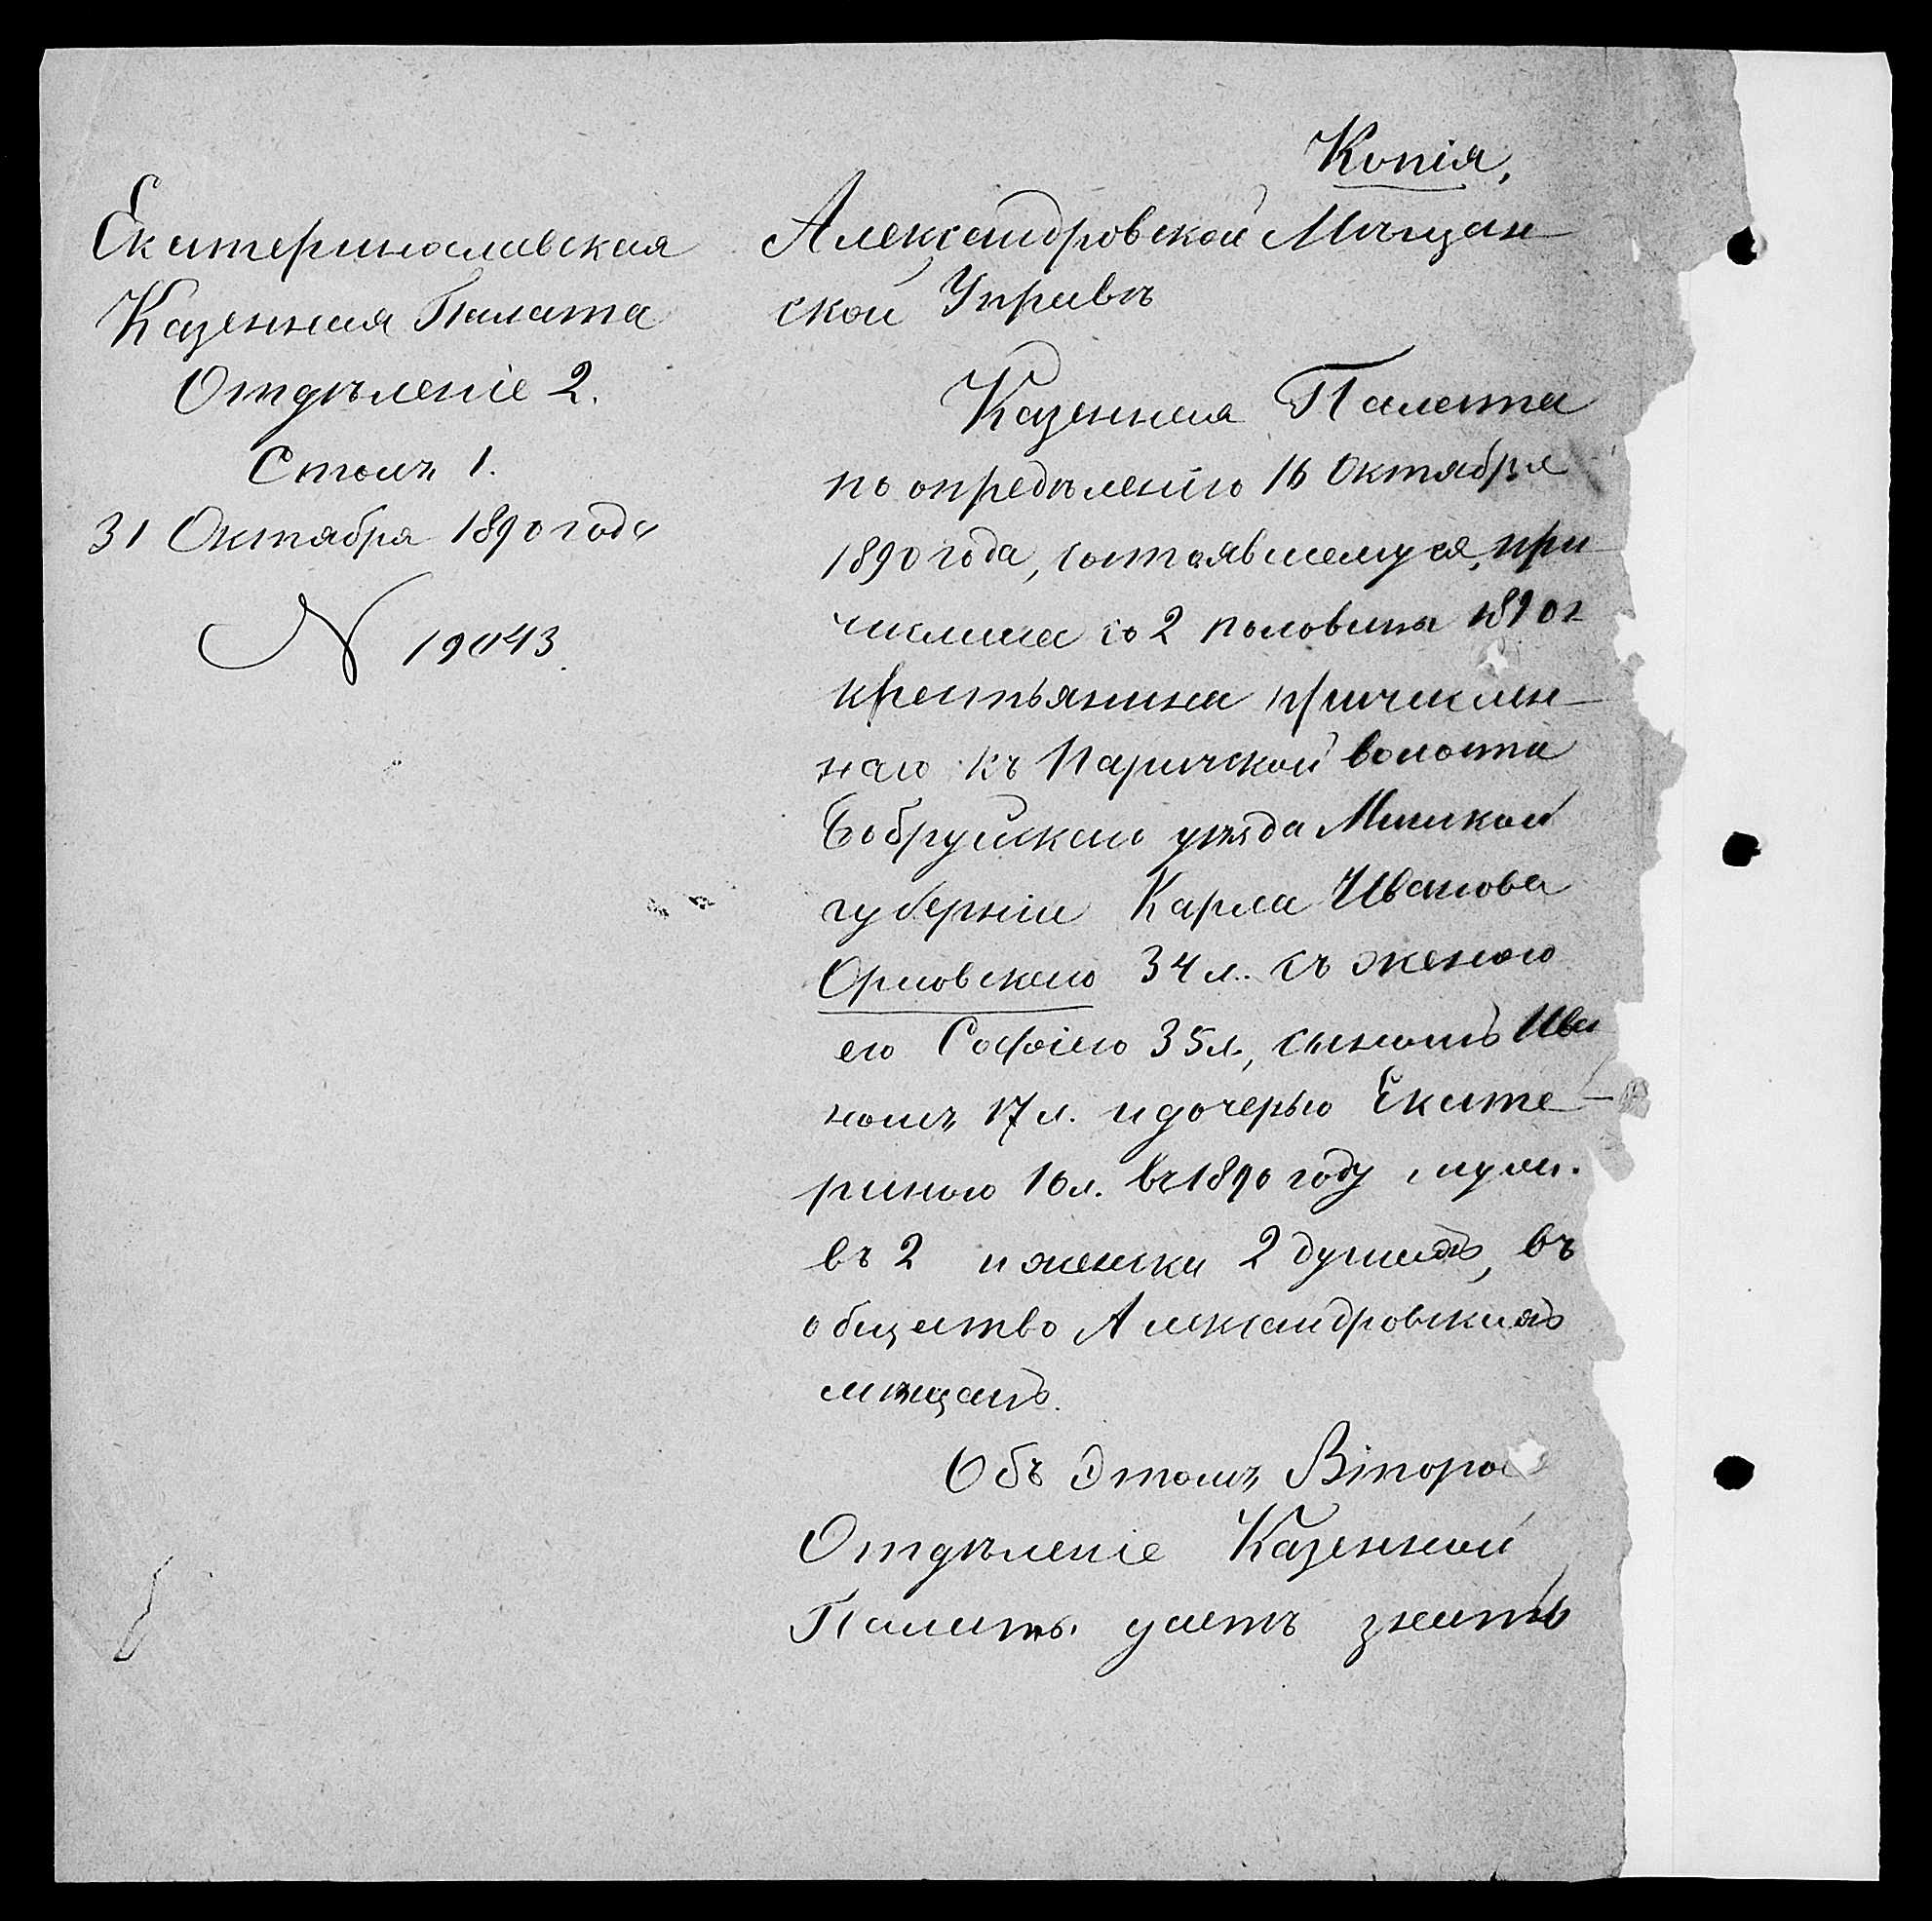 Копія.
Екатеринославская
Казенная Палата
Отдѣленіе 2.
Столъ 1.
31 Октября 1890 года
N 19043.
Александровской Мѣщан-
ской Управѣ
Казенная Палата
по опредѣленію 16 Октября
1890 года, состоявшемуся, при
числила со 2 половины 1890 г
крестьянина причислен-
наго къ Паричской волости
Бобруйскаго уѣзда Минской
губерніи Карла Иванова
Орловскаго 34 л. съ женою
его Софіею 35 л., сыномъ Ива
номъ 17 л. и дочерью Екате-
риною 16 л. въ 1890 году муж.
въ 2 и женски 2 душахъ, въ
общество Александровскихъ
мѣщанъ.
Объ этомъ Второе
Отдѣленіе Казенной
Палаты даетъ знать